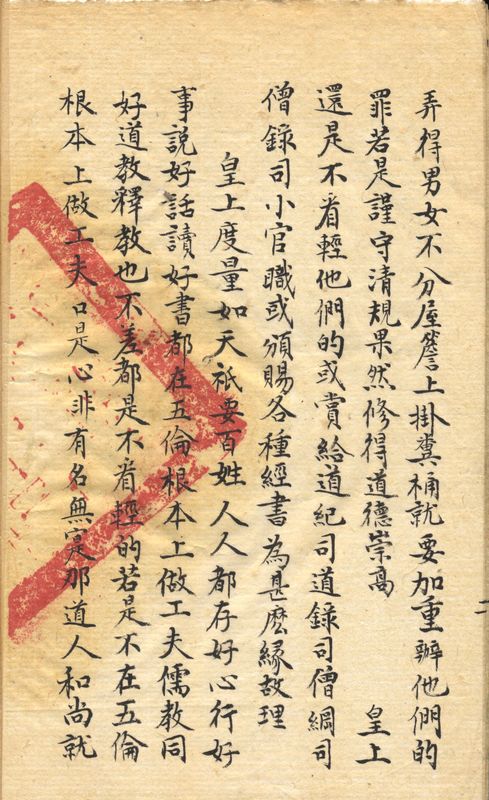 弄得男女不分屋簷上掛糞桶就要加重辦他們的
罪若是謹守清規果然修得道德崇高　皇上
還是不看輕他們的或賞給道紀司道錄司僧綱司
僧錄司小官職或頒賜各種經書為甚麼緣故理
皇上度量如天祇要百姓人人都存好心行好
事説好話讀好書都在五倫根本上做工夫儒教同
好道教釋教也不差都是不看輕的若是不在五倫
根本上做工夫口是心非有名無寔那道人和尚就